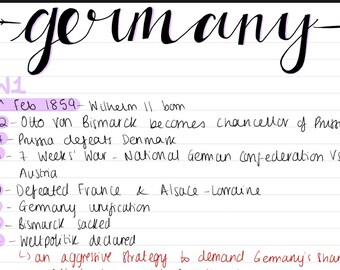 germany
N1
Feb 1859 - Wilhelm II born
2 - Otto von Bismarck becomes chancellor of Pruss
- Prussia defeats Denmark
- 7 Weeks' War - National German Confederation Vs
Austria
- Defeated France & Alsace-Lorraine
- Germany unification
- Bismarck sacked
- Weltpolitik declared
↳ an aggressive strategy to demand Germany's shar